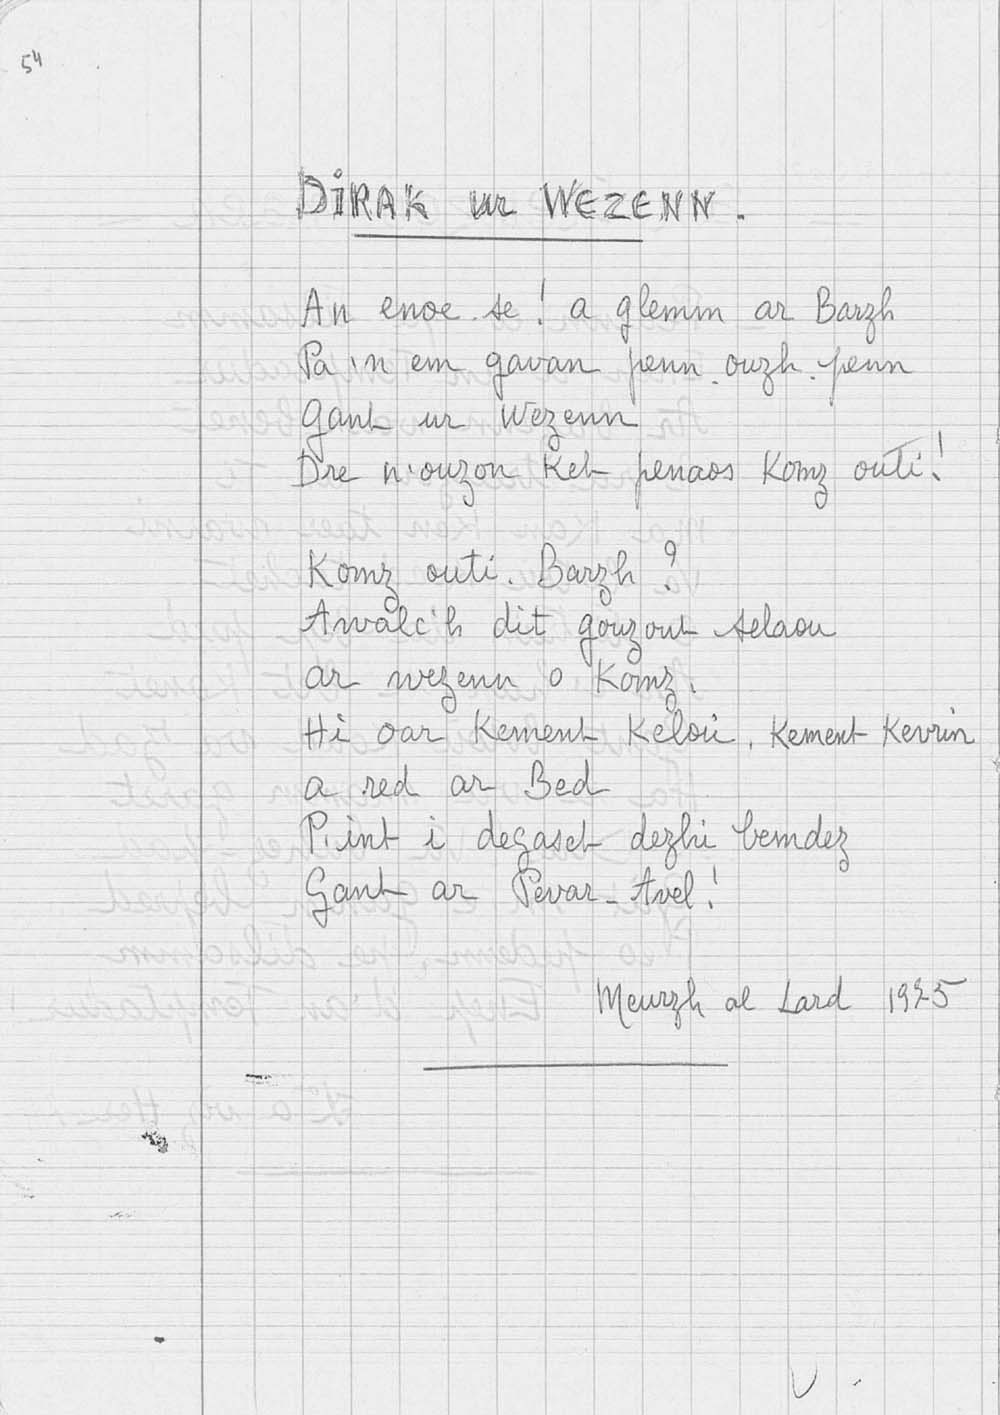 54
DiRAK ur WEZENN.
An enoe.se! a glemm ar Barzh
Pa'n em gavan penn.ouzh.penn
Gant ur Wezenn
Dre n'ouzon Ket penaos Komz outi!
Komz outi. Barzh?
Awalc'h dit gouzout selaou
ar wezenn o Komz.
Hi oar Kement Kelou, Kement Kevrin
a red ar Bed
P'int i degaset dezhi bemdez
Gant ar Pevar-Avel!
Meurzh al Lard